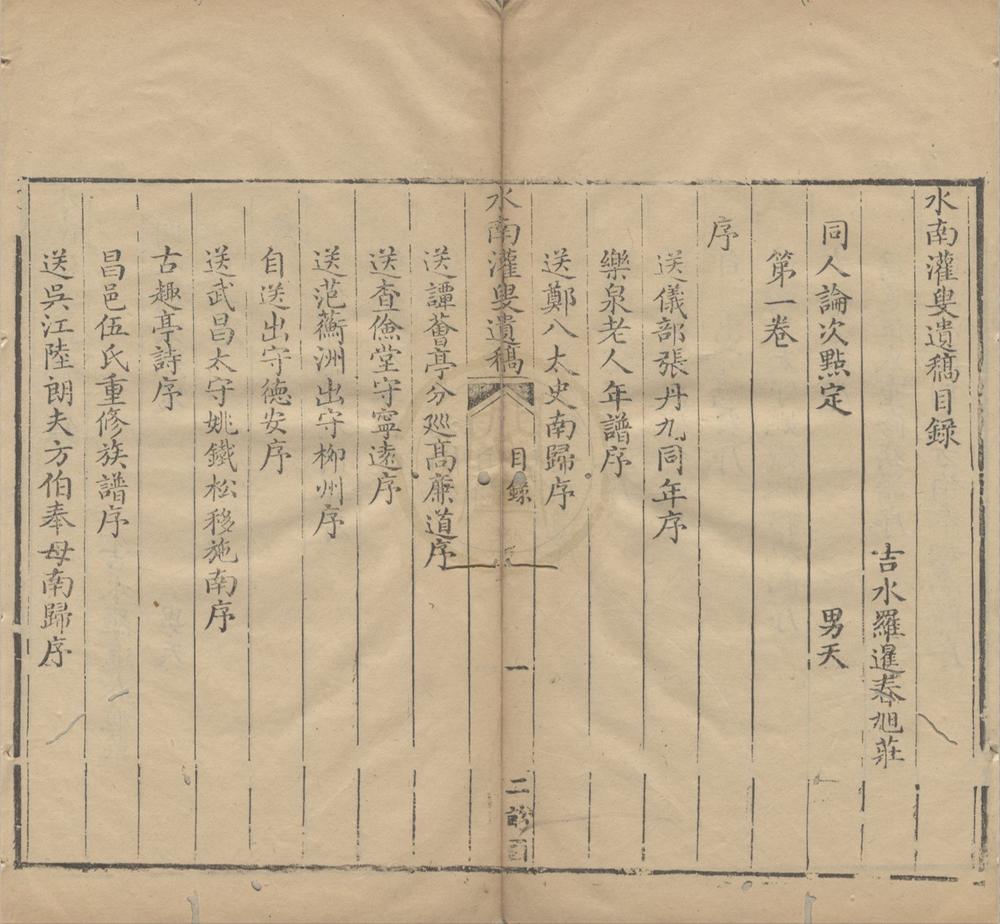 水南灌叟遺稿目録
吉水羅暹春旭莊
同人論次點定 男天
第一卷
序
送儀部張丹九同年序
樂泉老人年譜序
送鄭八太史南歸序
水南灌叟遺稿 目錄 一 二
送譚薈亭分廵髙亷道序
送查儉堂守寧遠序
送范蘅洲出守柳州序
自送出守德安序
送武昌太守姚鐵松移施南序
古趣亭詩序
昌邑伍氏重修族譜序
送吳江陸朗夫方伯奉母南歸序